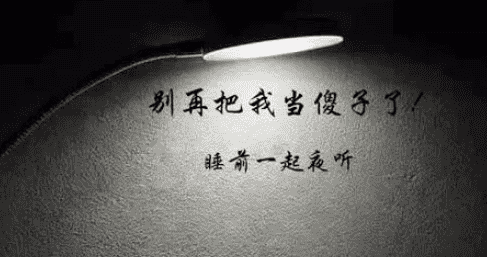 别再把我当傻子了!
睡前一起夜听